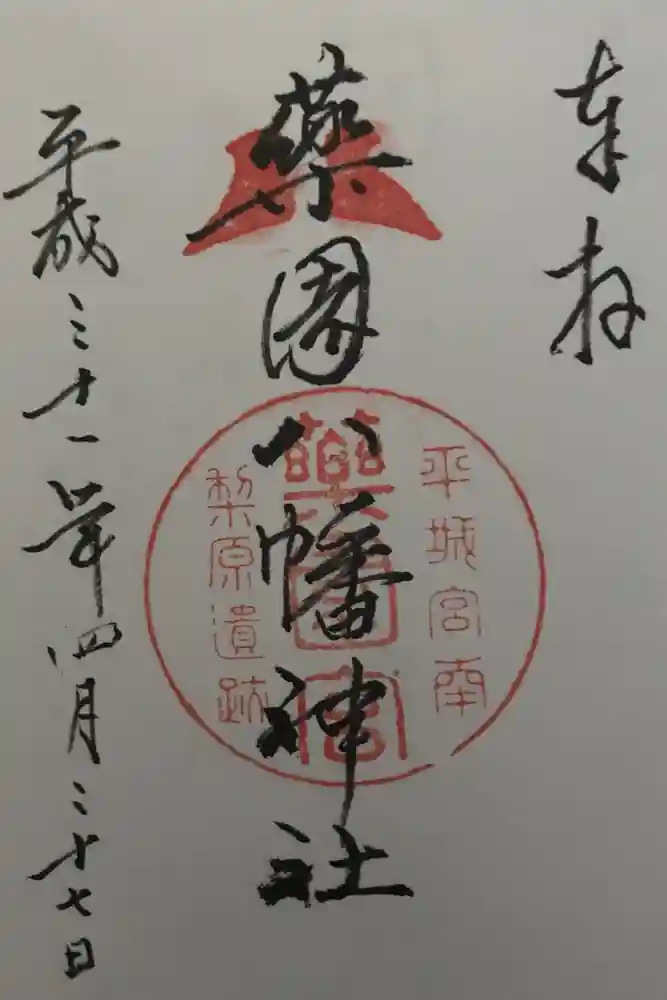 奉拝
平城宮南
薬園八幡神社
薬園宮
梨原遺跡
平成三十一年四月二十七日